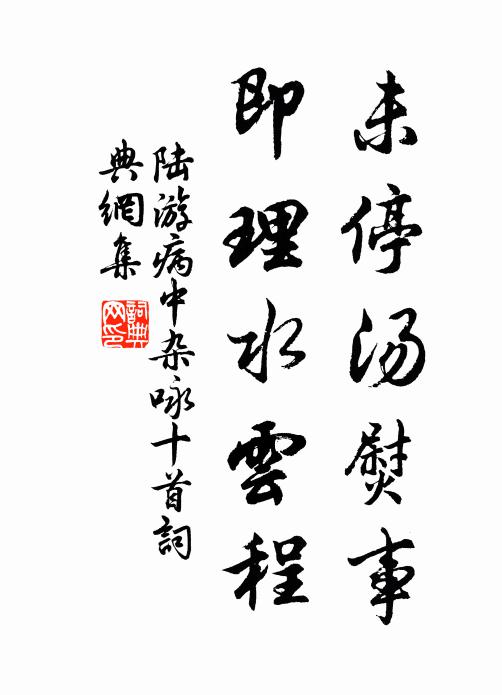 未停汤熨事
即理水雲程
陆游病中杂咏十首詞
典網集
詞典
网印